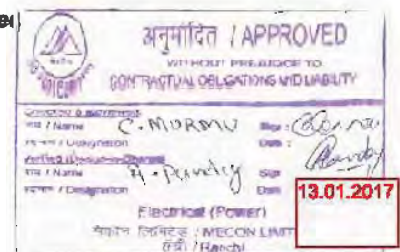 अनुमोदित / APPROVED
WITHOUT PREJUDICE TO
CONTRACTUAL OBLIGATIONS AND LIABILITY
नाम / Name C. MURMU Sign :
पदनाम / Designation Date :
नाम / Name A. Pandey Sign
पदनाम / Designation Date 13.01.2017
Electrical (Power)
मेकॉन लिमिटेड / MECON LIMIT
रांची / Ranchi